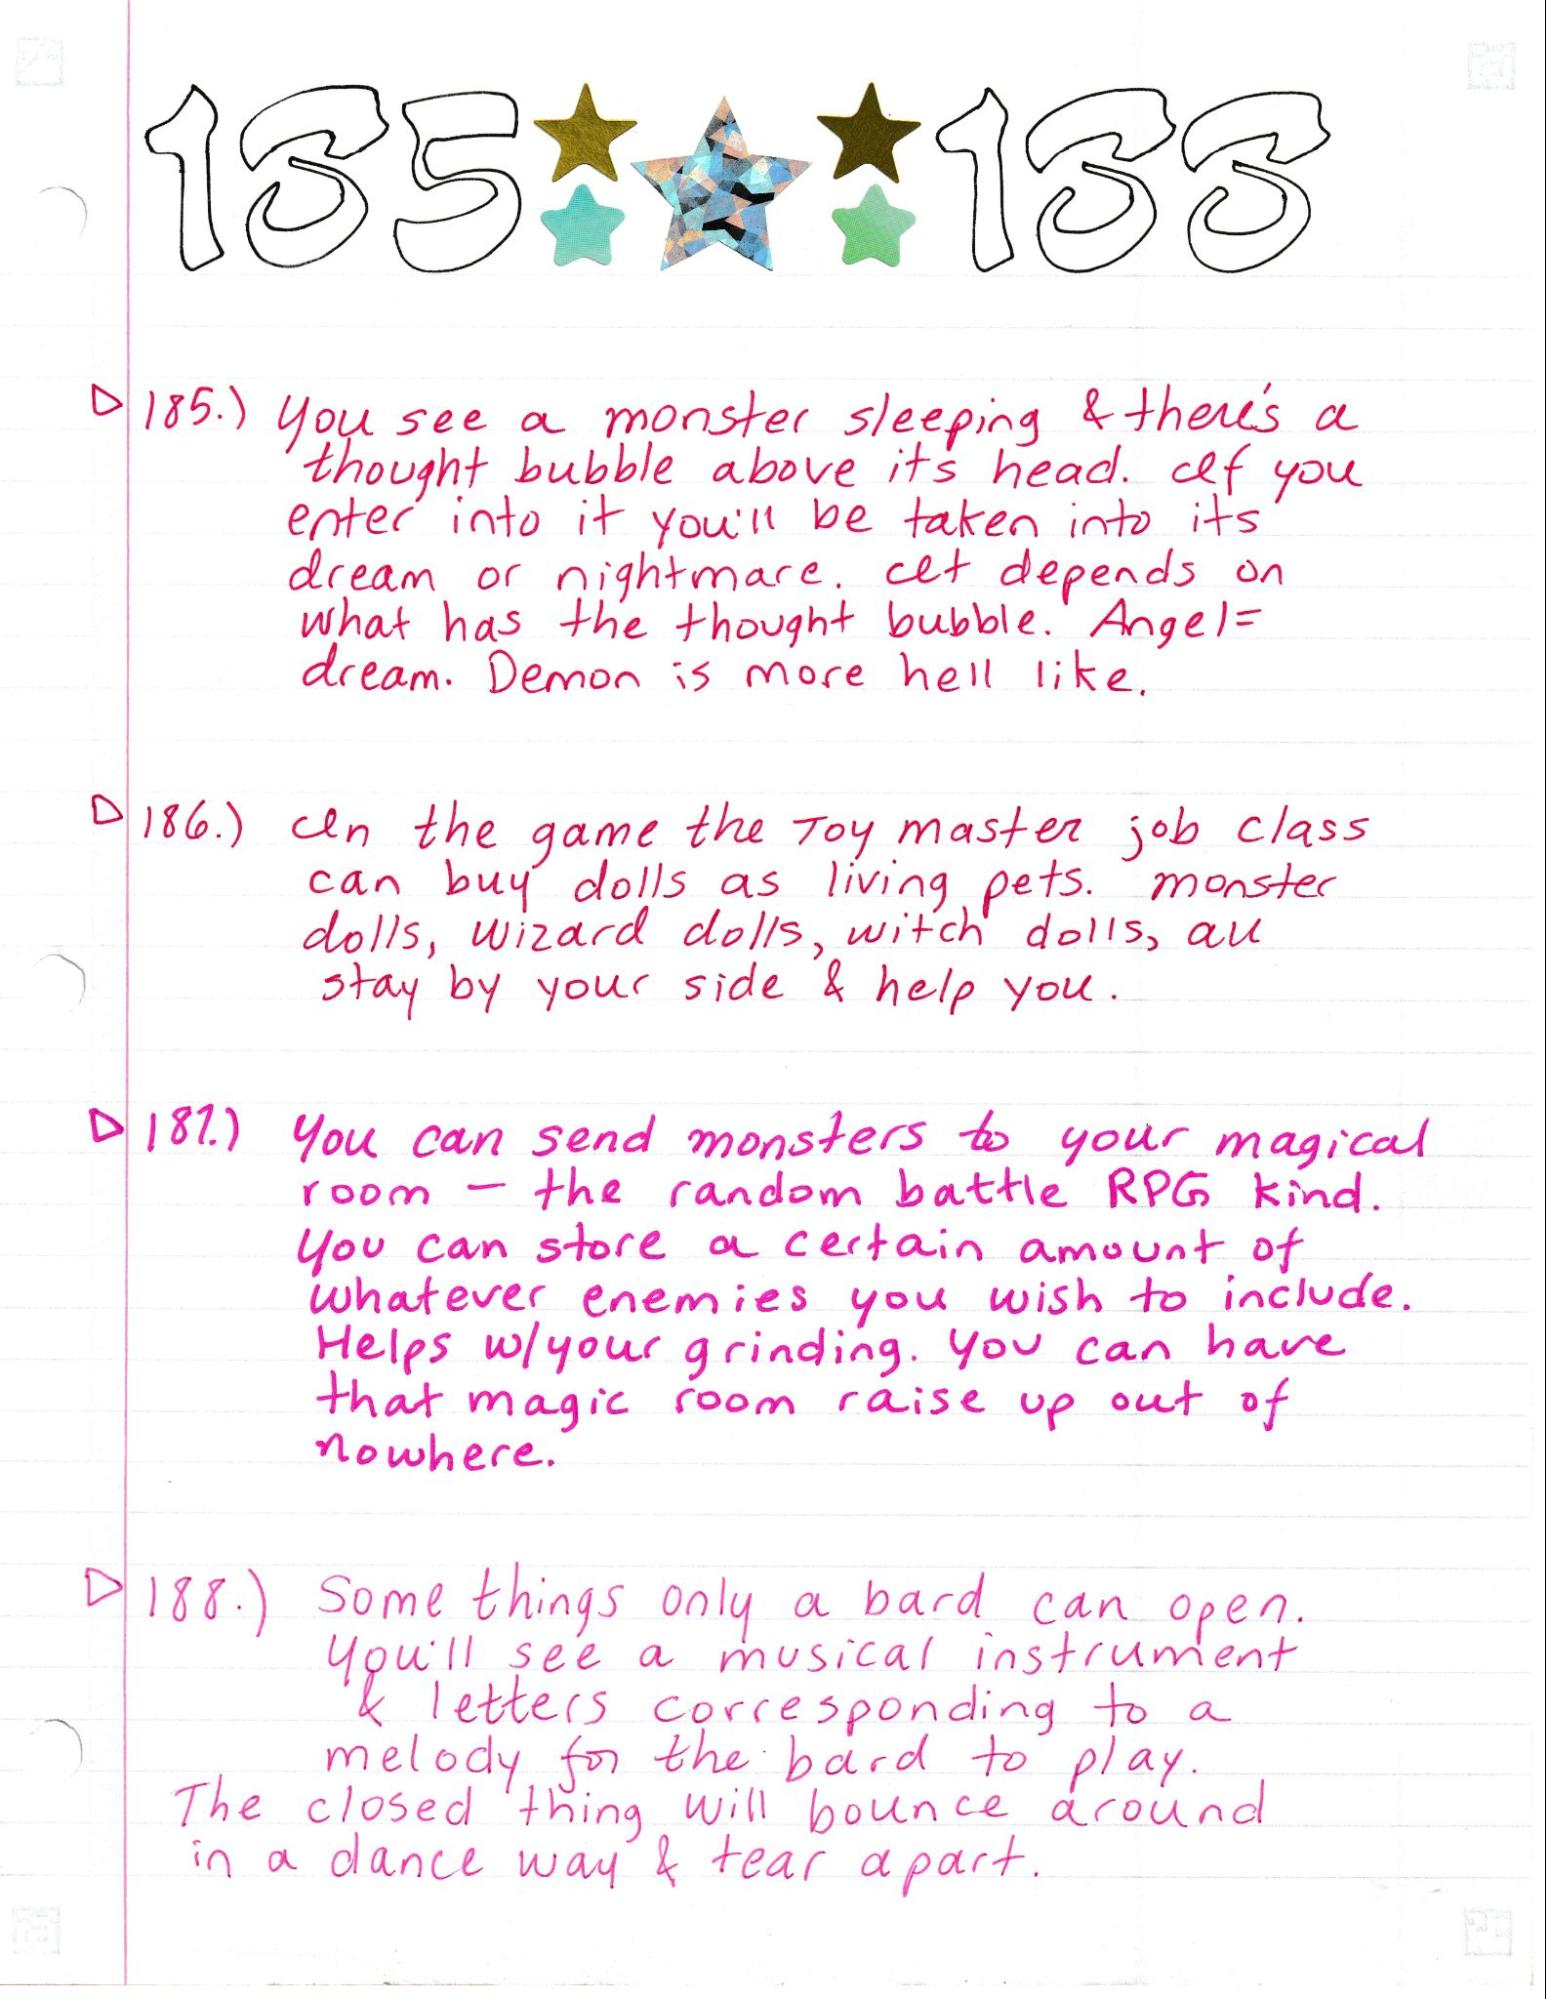 185 188
185.) You see a monster sleeping & there's a
thought bubble above its head. If you
enter into it you'll be taken into its
dream or nightmare. It depends on
what has the thought bubble. Angel=
dream. Demon is more hell like.
186.) In the game the Toy master job class
can buy dolls as living pets. monster
dolls, wizard dolls, witch dolls, all
stay by your side & help you.
187.) You can send monsters to your magical
room – the random battle RPG kind.
You can store a certain amount of
whatever enemies you wish to include.
Helps w/your grinding. You can have
that magic room raise up out of
nowhere.
188.) Some things only a bard can open.
You'll see a musical instrument
& letters corresponding to a
melody for the bard to play.
The closed thing will bounce around
in a dance way & tear apart.